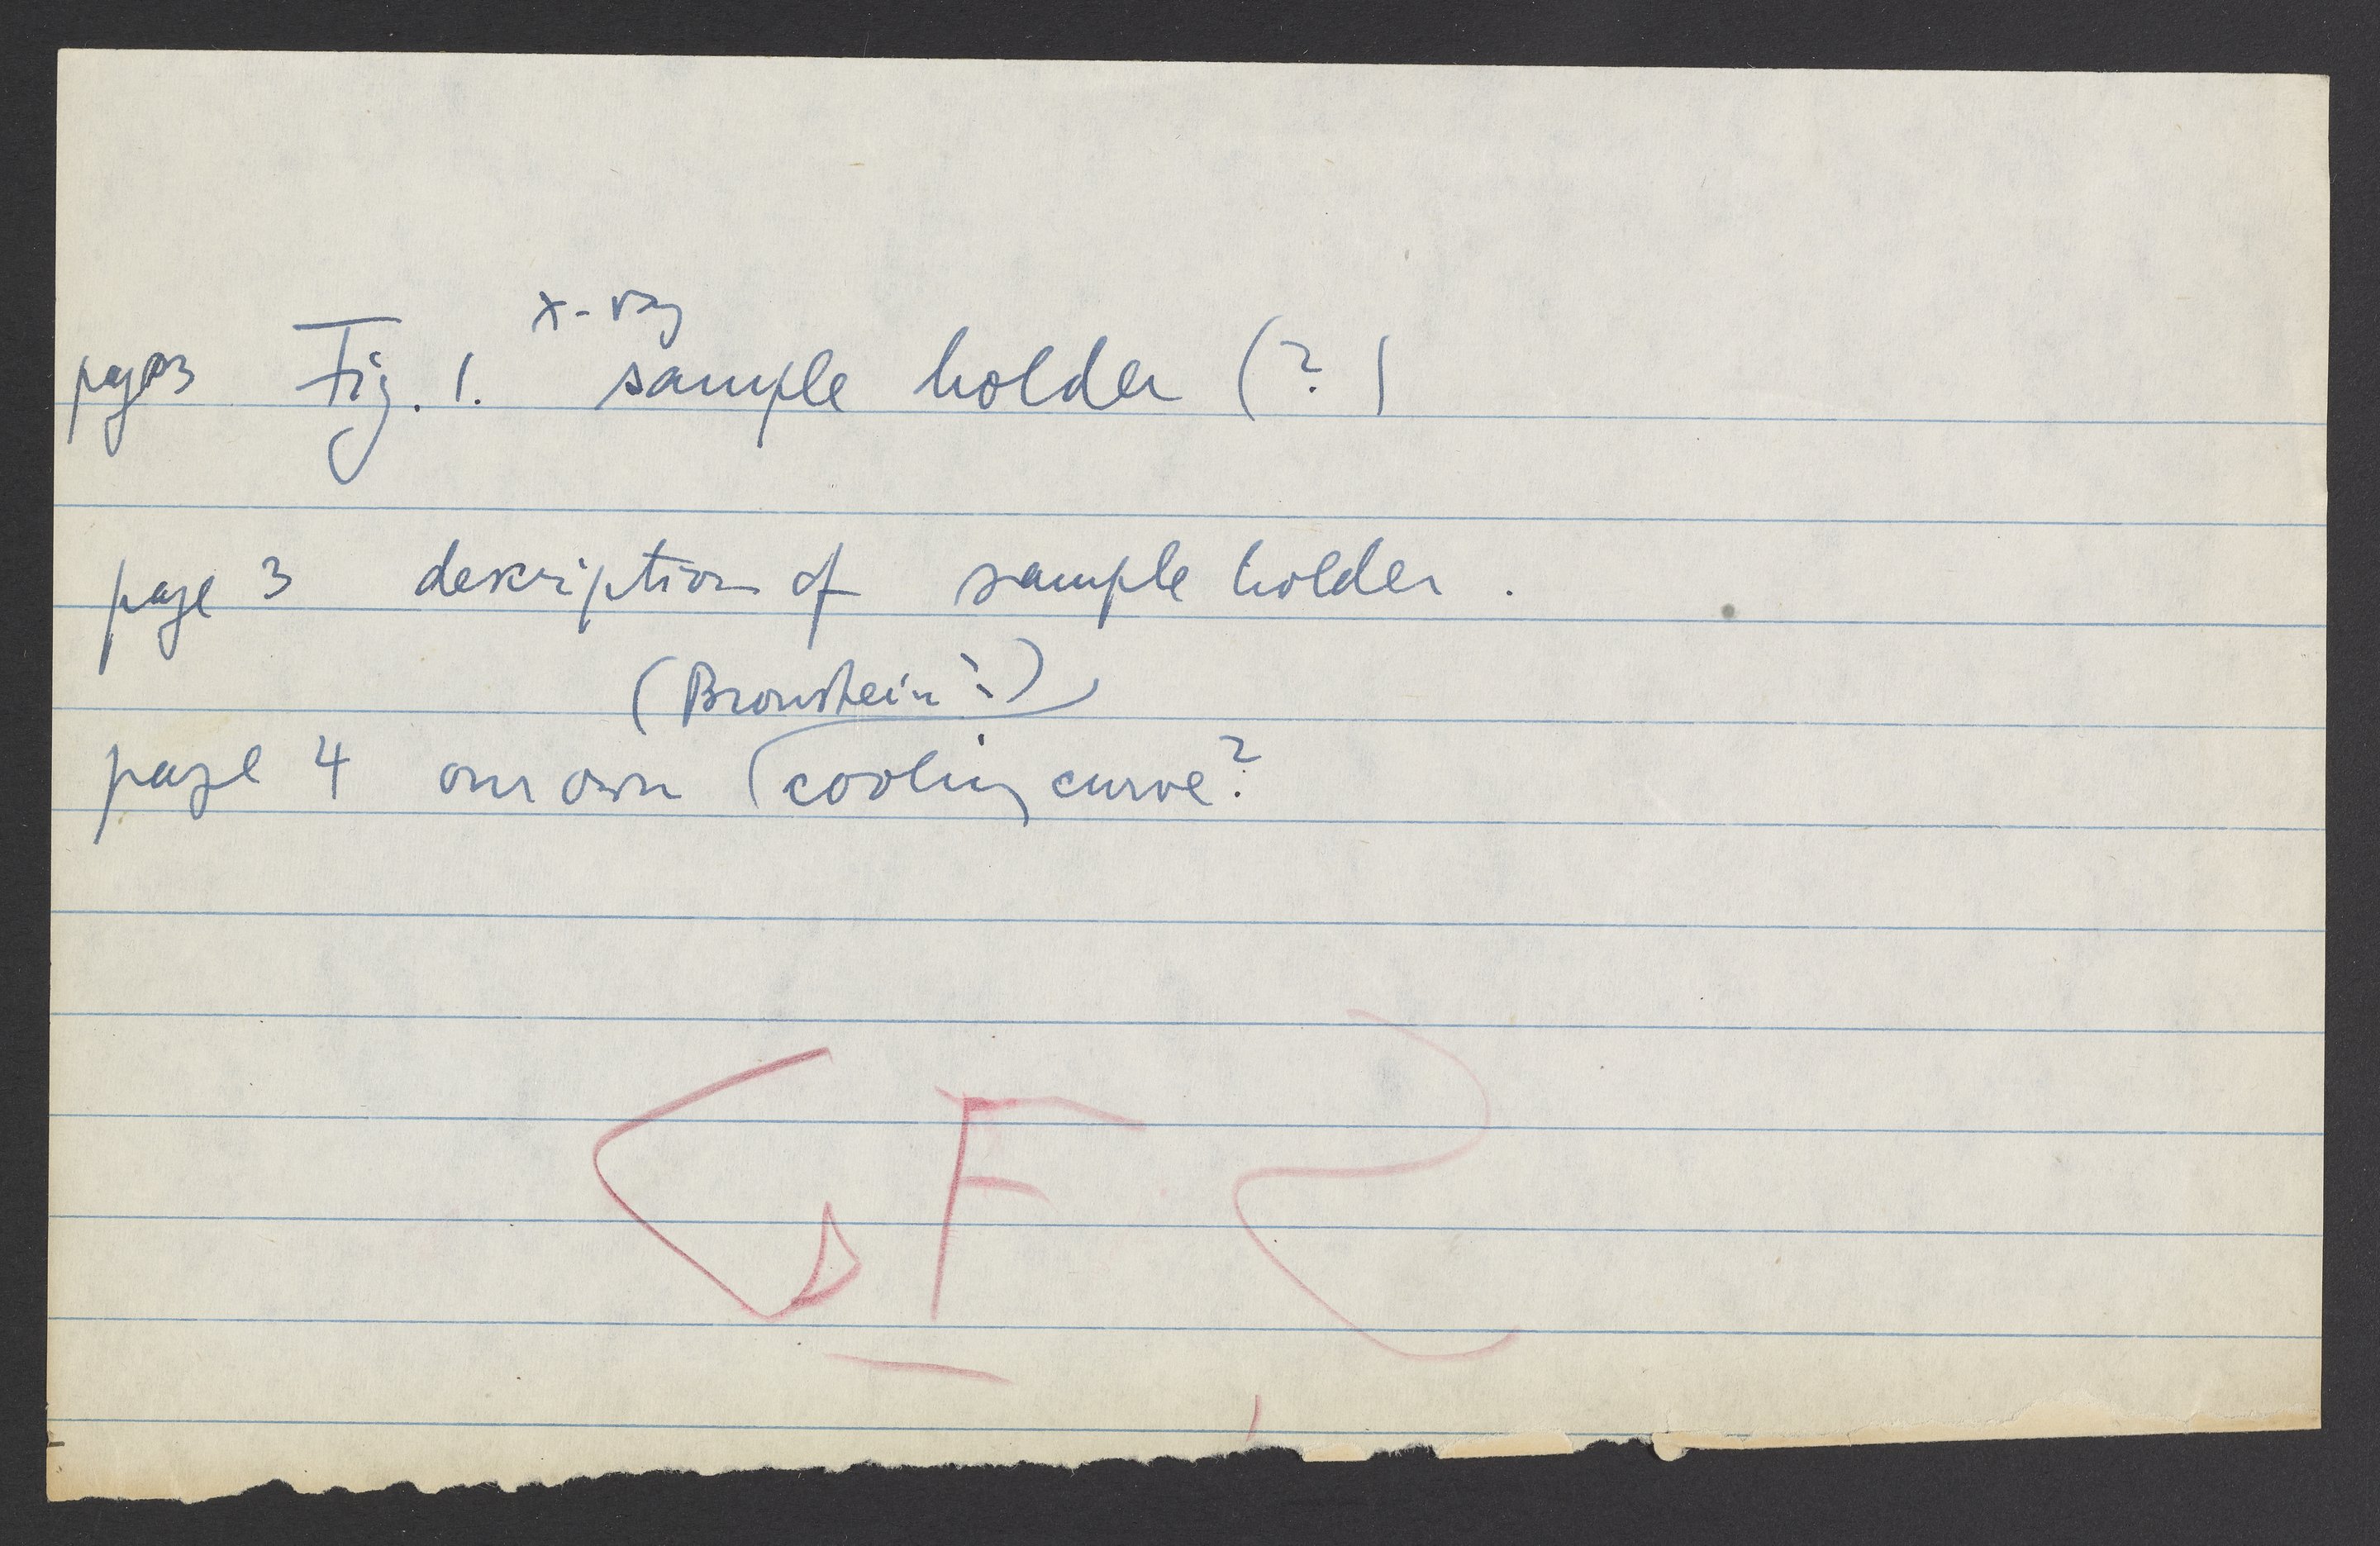 page 3 Fig. 1. x-ray sample holder (?)
page 3 deskription of sample holder.
(Bronstein?)
page 4 our own cooling curve?
GF